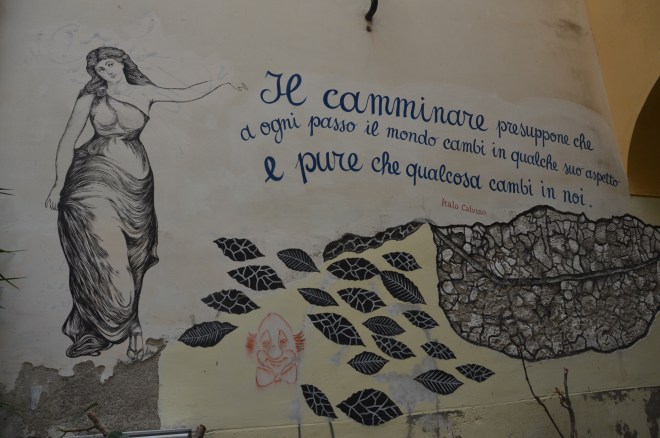 Il camminare presuppone che
a ogni passo il mondo cambi in qualche suo aspetto
e pure che qualcosa cambi in noi.
Italo Calvino